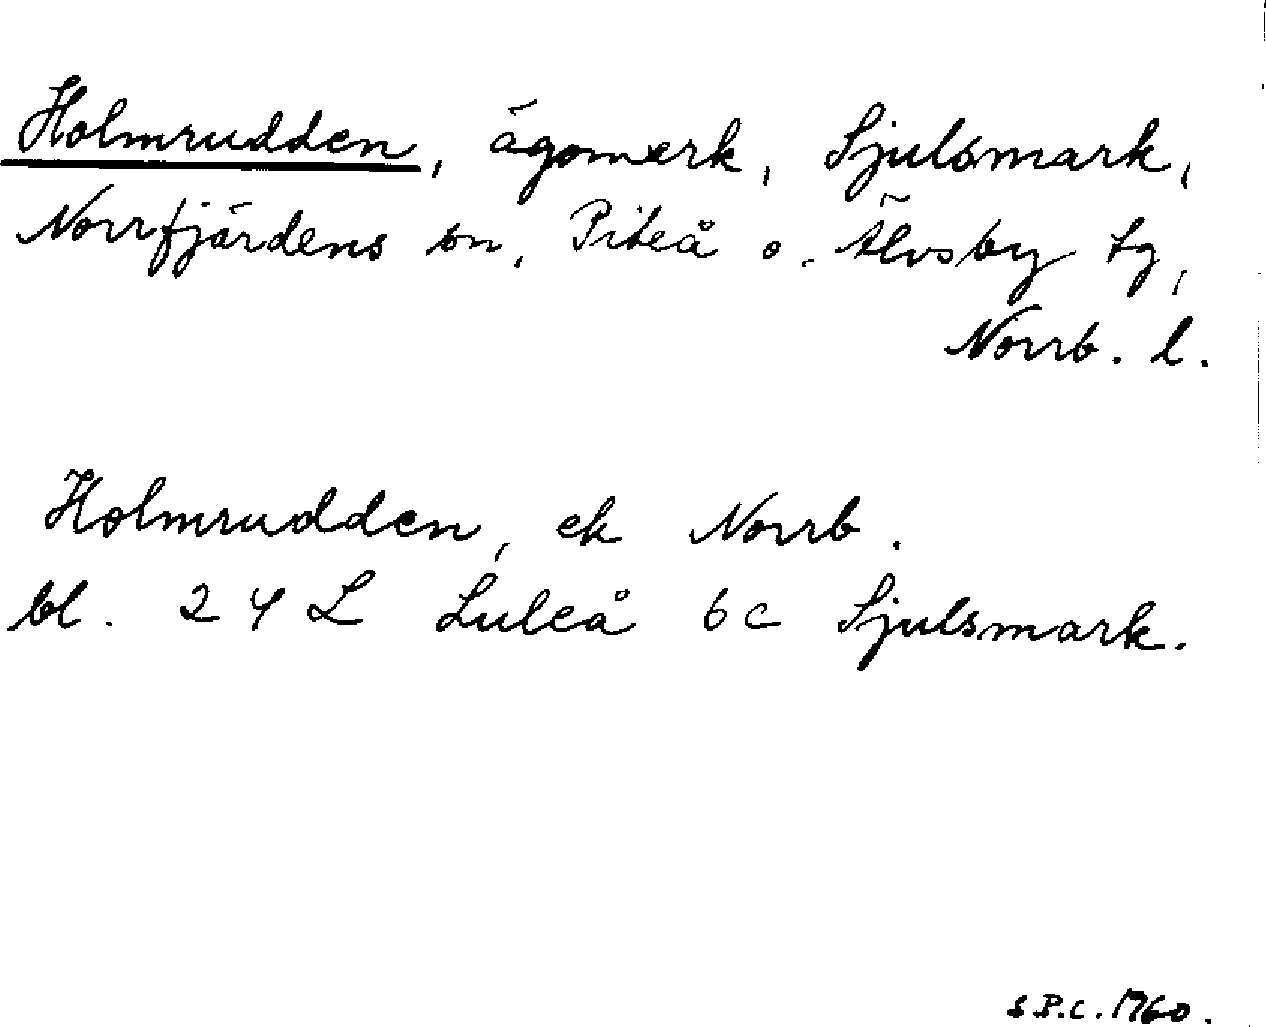 Holmrudden, ägomerk, Sjulsmark,
Norrfjärdens sn, Piteå o. Älvsby tg,
Norrb. l.
Holmrudden, ek Norrb.
bl. 24 L Luleå 6c Sjulsmark.
S.P.C. 1960.